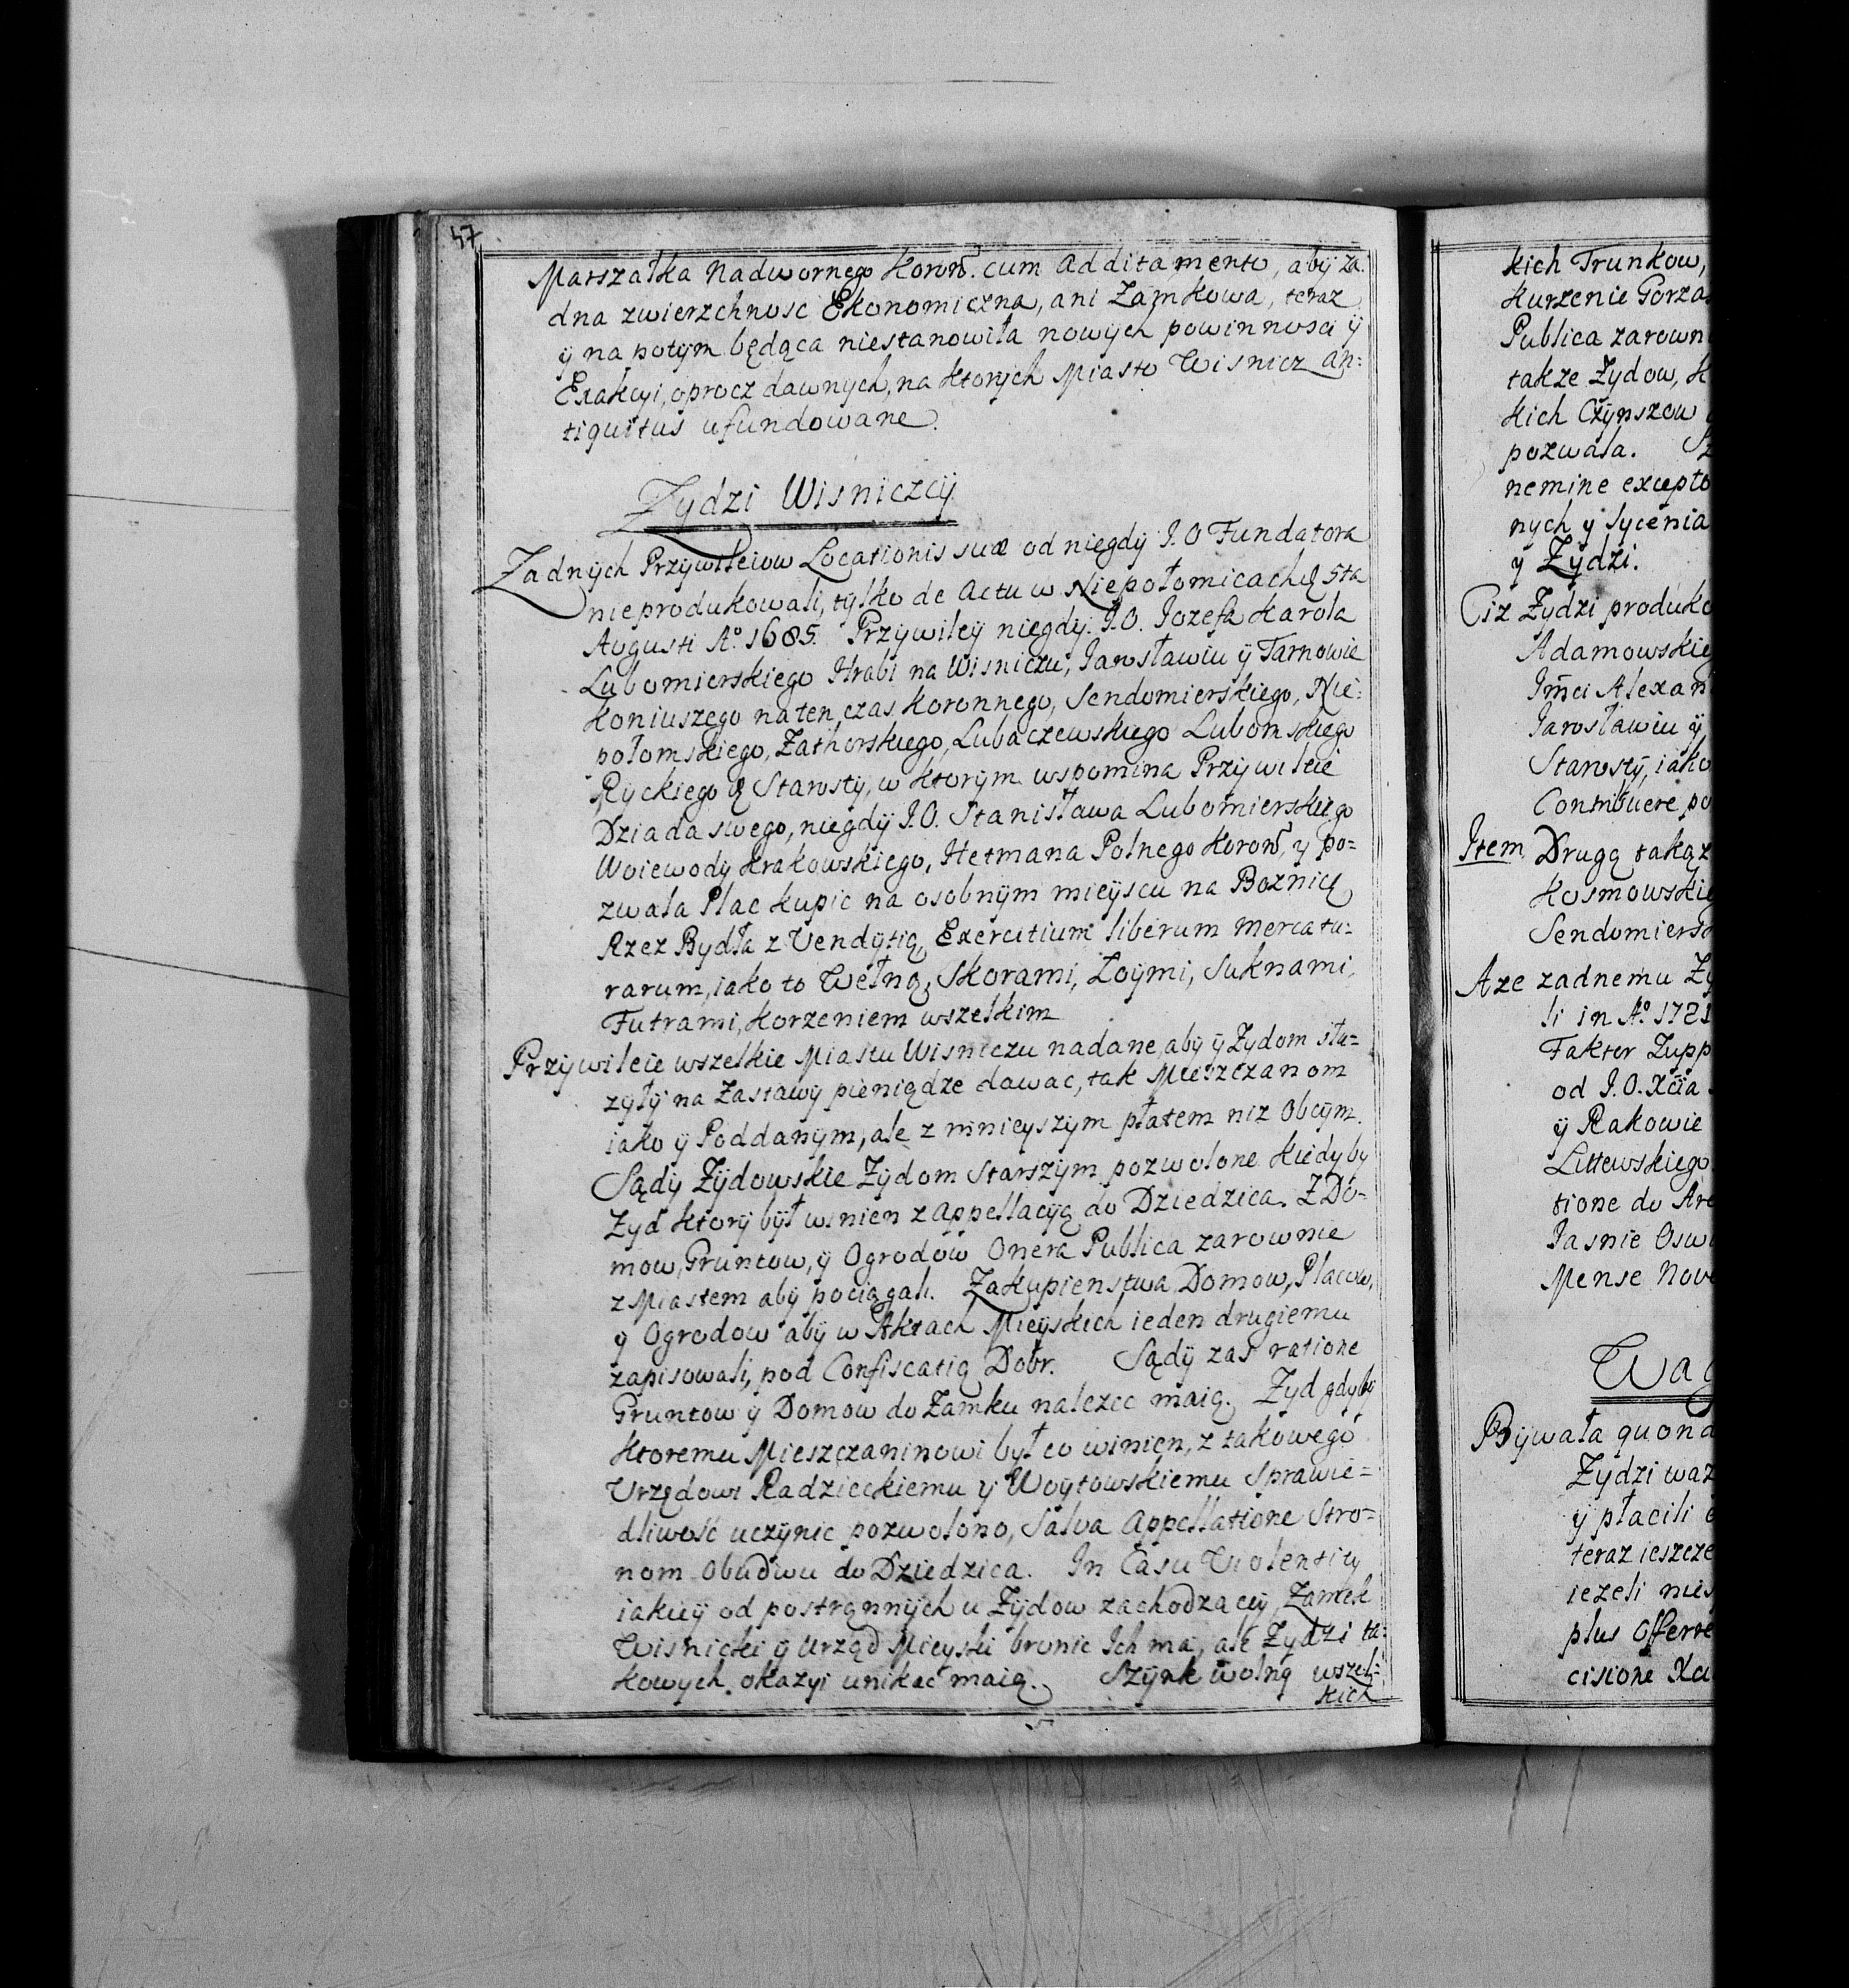 47
Marszałka Nadwornego Koroñ. cum Additamento, abÿ ża-
dna zwierzchnosc Ekonomiczna, ani Zamkowa, teraz
ÿ na potÿm będąca niestanowiła nowÿch powinnosci ÿ
Exakcyi, oprocz dawnych, na ktorÿch Miasto Wisnicz an:
tiquitus ufundowane.
Zÿdzi Wisniczcÿ
Zadnÿch Przÿwileiow Locationis suæ od niegdÿ J.O Fundatora
nieprodukowali, tÿlko de Actu w Niepołomicach 5ta
Augusti Aº. 1685. Przÿwileÿ niegdÿ J.O. Jozefa Karola
Lubomierskiego Hrabi na Wisniczu, Jarosławiu ÿ Tarnowie
Koniuszego na ten czas Koronnego, Sendomierskiego, Nie:
połomskiego, Zathorskiego, Lubaczewskiego Lubomskiego
Rÿckiego & Starostÿ, w ktorÿm wspomina Przÿwileie
Dziada swego, niegdÿ J.O. Stanisława Lubomierskiego
Woiewodÿ Krakowskiego, Hetmana Polnego Koroñ, y po=
zwala Plac kupic na osobnÿm mieÿscu na Boznicą
Rzez Bydła z Vendÿtią, Exercitium liberum Mercatu-
rarum, iako to Wełną, Skorami, Łoÿmi, Suknami,
Futrami, Korzeniem wszelkim
Przÿwileie wszelkie Miastu Wisniczu nadane, abÿ ÿ Zydom słu=
zÿłÿ na Zastawÿ pieniądze dawac, tak Mieszczanom
iako ÿ Poddanÿm, ale z mnieyszÿm płatem niz Obcÿm.
Sądÿ Zÿdowskie Zÿdom Starszÿm pozwolone kiedyby
Zyd ktorÿ bÿł winien z Appellacÿą do Dziedzica. Z Do-
mow, Gruntow, ÿ Ogrodow Onera Publica zarownie
z Miastem abÿ pociągali. Zakupienstwa Domow, Placow,
y Ogrodow abÿ w Aktach Mieÿskich ieden drugiemu
zapisowali, pod Confiscatią Dobr. Sądÿ zas ratione
Gruntow ÿ Domow do Zamku nalezec maią. Zyd gdyby
ktoremu Mieszczaninowi był co winien, z takowego
Urzędowi Radzieckiemu ÿ Woytowskiemu Sprawie=
dliwość uczÿnic pozwolono, Salva Appellatione Stro=
nom Obudwu do Dziedzica. In Casu Violentiÿ
iakieÿ od postrąnnÿch u Zÿdow zachodzaceÿ Zamek
Wisnicki ÿ Urząd Mieyski bronic Ich ma, ale Zydzi ta-
kowych okazyi unikac maią. Szÿnk wolnÿ wszel-
kich
kich Trunkow,
Kurzenie Gorza
Publica zarown
takze Zydow, k
kich Czÿnszow
pozwala.
nemine excepto
nych ÿ Sycenia
ÿ Zÿdzi.
Ciz Zydzi produko
Adamowskie
Jm̃ci Alexan
Jarosławiu ÿ
Starostÿ, iako
Contribuere po
Item Drugą takąz
Kosmowskie
Sendomiersk
Aze zadnemu Zy
li in Aº. 1721
Faktor Zupp
od J.O. Xcia
ÿ Rakowie
Littewskiego
tione do Are
Jasnie Osw
Mense Nove
Wag
Bÿwała quond
Zÿdzi waz
ÿ płacili
teraz ieszcze
iezeli nies
plus Offerre
cisione Xa